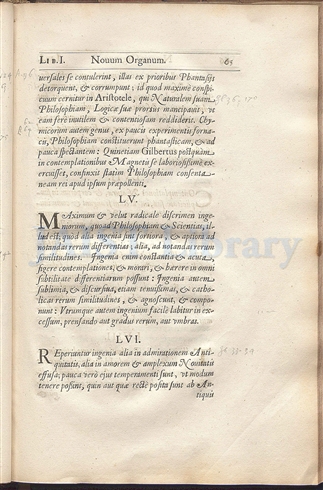 LIB. I. Nouum Organum. 65
uersales se contulerint, illas ex prioribus Phantasijs
detorquent, & corrumpunt; id quod maximè conspi-
cuum cernitur in Aristotele, qui Naturalem suam
Philosophiam, Logicæ suæ prorsùs mancipauit, vt
eam ferè inutilem & contentiosam reddiderit. Chy-
micorum autem genus, ex paucis experimentis forna-
cis, Philosophiam constituerunt phantasticam, & ad
pauca spectantem: Quinetiam Gilbertus postquàm
in contemplationibus Magnetis se laboriosissimè exer-
cuisset, confinxit statim Philosophiam consenta-
neam rei apud ipsum præpollenti.
LV.
MAximum & velut radicale discrimen inge-
niorum, quoad Philosophiam & Scientias, il-
lud est; quòd alia ingenia sint fortiora, & aptiora ad
notandas rerum differentias; alia, ad notandas rerum
similitudines. Ingenia enim constantia & acuta,
figere contemplationes, & morari, & hærere in omni
subtilitate differentiarum possunt: Ingenia autem
sublimia, & discursiua, etiam tenuissimas, & catho-
licas rerum similitudines, & agnoscunt, & compo-
nunt: Vtrumque autem ingenium facilè labitur in ex-
cessum, prensando aut gradus rerum, aut vmbras.
LVI.
REperiuntur ingenia alia in admirationem Anti-
quitatis, alia in amorem & amplexum Nouitatis
effusa; pauca verò eius temperamenti sunt, vt modum
tenere possint, quin aut quæ rectè posita sunt ab An-
tiquis
Library